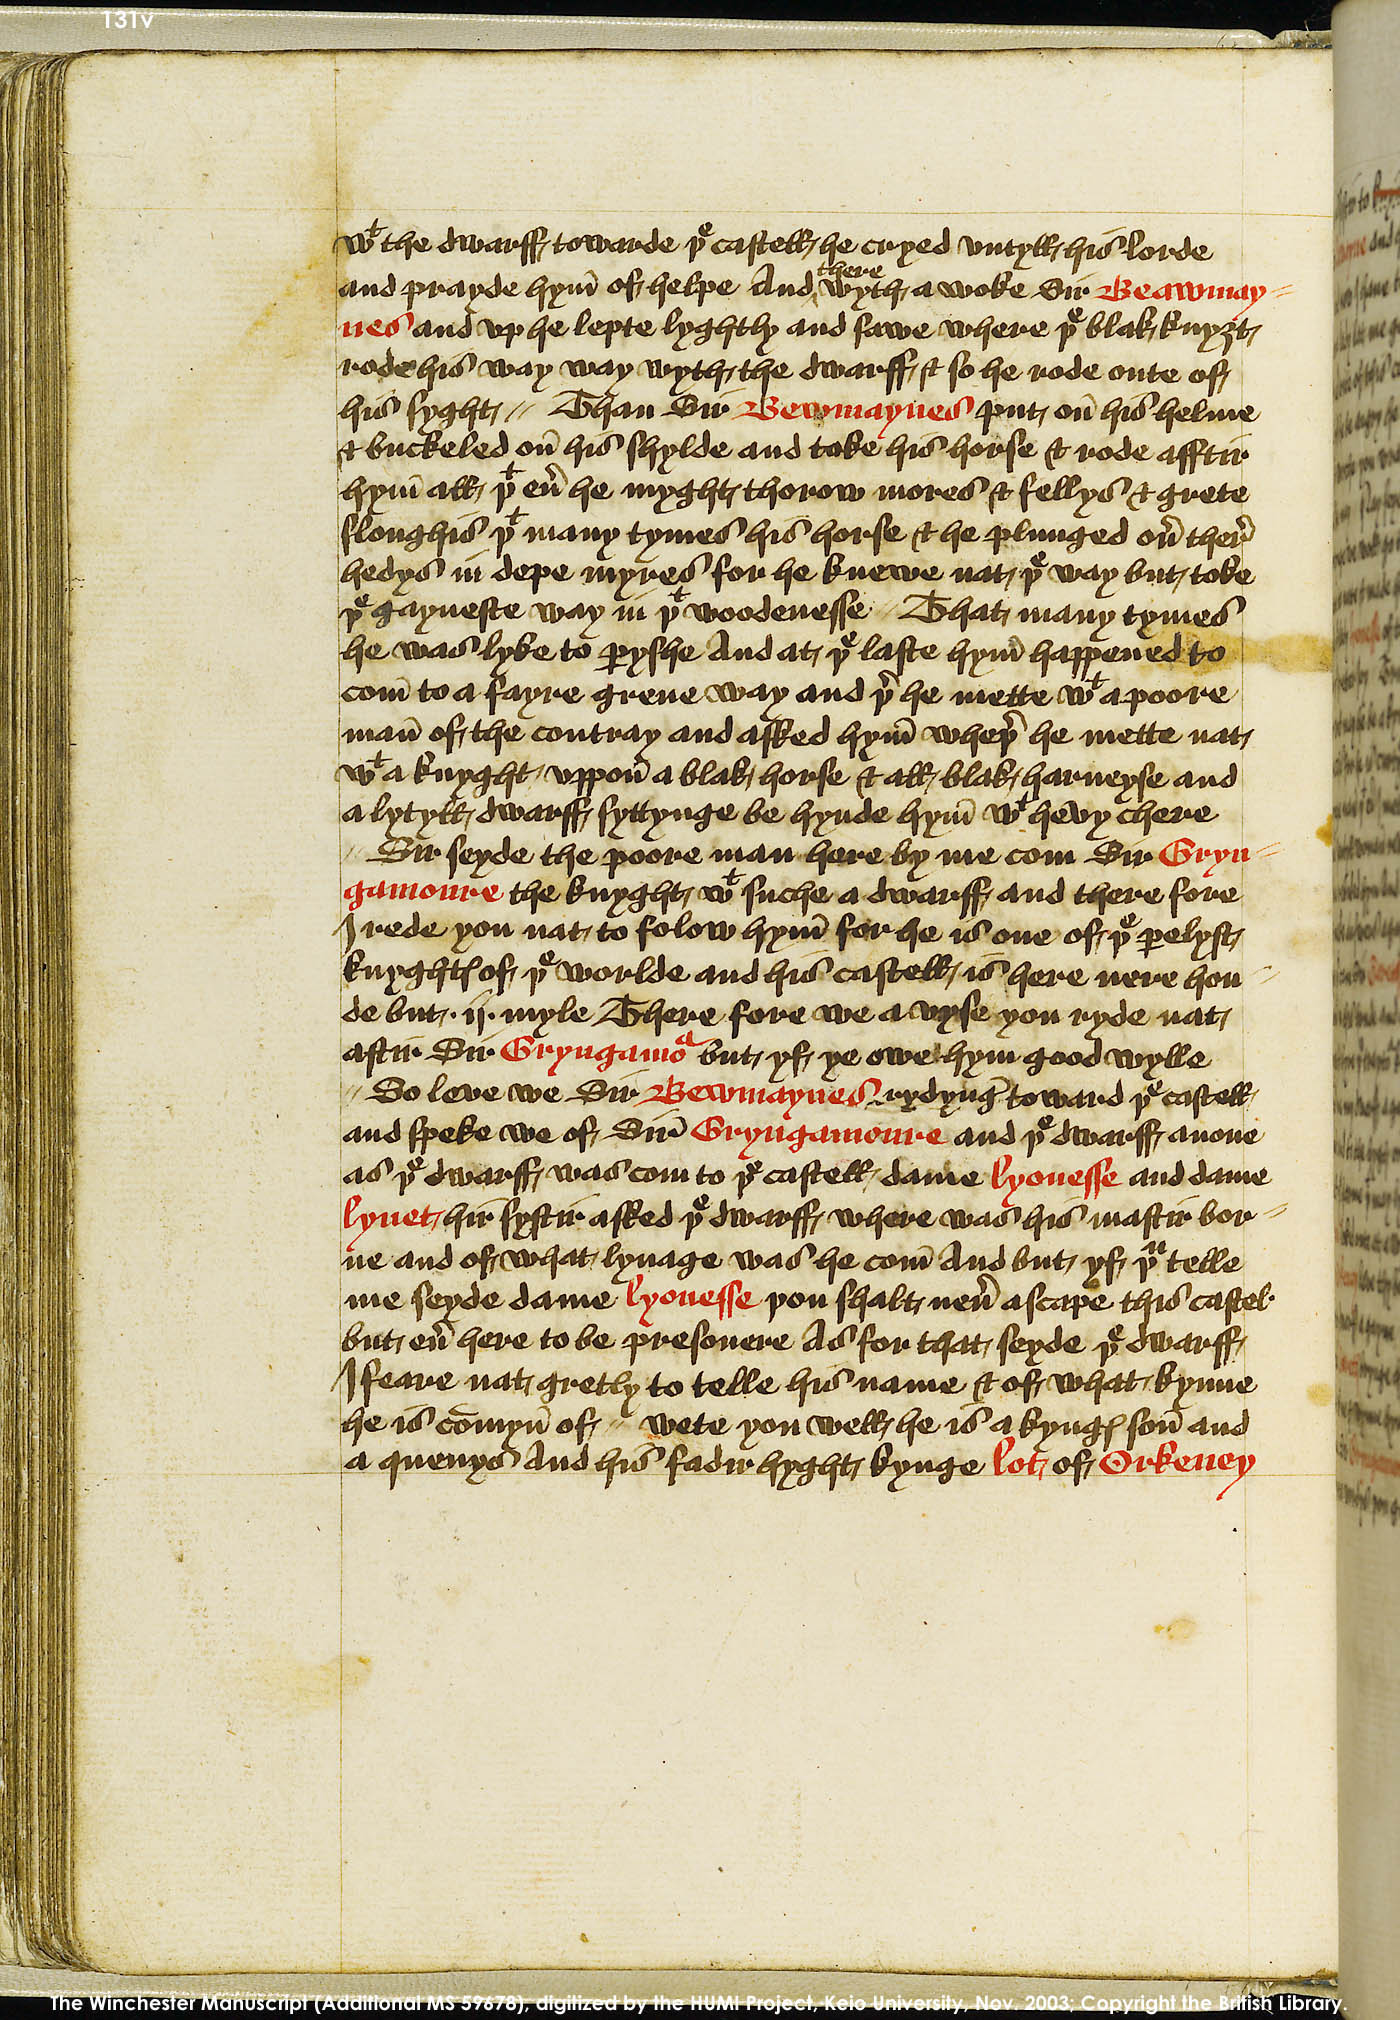 131v
wᵗ the dwarff towarde þᵉ castell he cryed vntyll his lorde
and prayde hym̄ of helpe And there wyth a woke Sir Beawmay-
nes and vp he lepte lyghtly and sawe where þᵉ blak knyȝt
rode his way way wyth the dwarff & so he rode oute of
his syght // Than Sir Bewmaynes put on̄ his helme
& buckeled on̄ his shylde and toke his horse & rode afftir
hym̄ all þᵗ eu̾ he myght thorow mores & fellys & grete
sloughis þᵗ many tymes his horse & he plunged ou̾ ther̾
hedys in depe myres for he knewe nat þᵉ way but toke
þᵉ gayneste way in þᵗ woodenesse // That many tymes
he was lyke to ꝑyshe And at þᵉ laste hym̄ happened to
com̄ to a fayre grene way and þ̾ he mette wᵗ a poore
man̄ of the contray and asked hym̄ wheþ̾ he mette nat
wᵗ a knyght vppon̄ a blak horse & all blak harneyse and
a lytyll dwarff syttynge be hynde hym̄ wᵗ hevy chere
// Sir seyde the poore man here by me com Sir Gryn-
gamoure the knyght wᵗ suche a dwarff and there fore
I rede you nat to folow hym̄ for he is one of þᵉ ꝑelyst
knyghtꝭ of þᵉ worlde and his castell is here nere hon-
de but .ij. myle There fore we a vyse you ryde nat
aftir Sir Gryngamoᵃ but yf ye owe hym good wylle
// So leve we Sir Bewmaynes rydynḡ toward þᵉ castell
and speke we of Sir̄ Gryngamoure and þᵉ dwarff anone
as þᵉ dwarff was com to þᵉ castell dame lyonesse and dame
lynet hir systir asked þᵉ dwarff where was his mastir bor-
ne and of what lynage was he com̄ And but yf þᵘ telle
me seyde dame lyonesse þou shalt neu̾ ascape this castel
but eu̾ here to be presonere As for that seyde þᵉ dwarff
I feare nat gretly to telle his name & of what kynne
he is cōmyn̄ of // wete you well he is a kyngꝭ son̄ and
a quenys And his fadir hyght kynge lot of Orkeney
The Winchester Manuscript (Additional MS 59678), digitized by the HUMI Project, Keio University, Nov. 2003; Copyright the British Library.